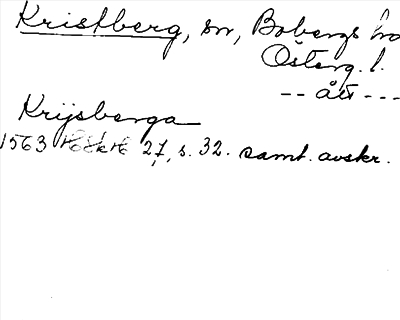 Kristberg, sn, Bobergs hd
Österg. l.
-- ått ---
Krijsberga
1563 27, s. 32. samt. avskr.